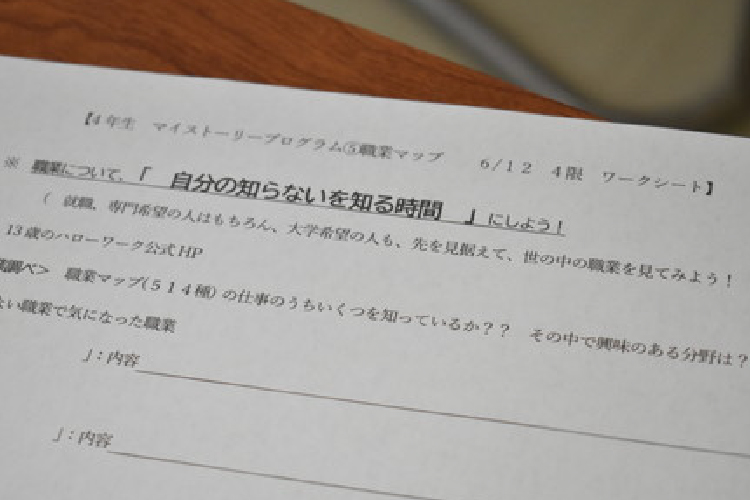 【4年生　マイストーリープログラム⑤職業マップ　6/12　4限　ワークシート】
※　職業について、「　自分の知らないを知る時間　」にしよう！
（　就職、専門希望の人はもちろん、大学希望の人も、先を見据えて、世の中の職業を見てみよう！
13歳のハローワーク公式HP
調べ＞　職業マップ（514種）の仕事のうちいくつを知っているか？？　その中で興味のある分野は？
ない職業で気になった職業
」：内容
」：内容